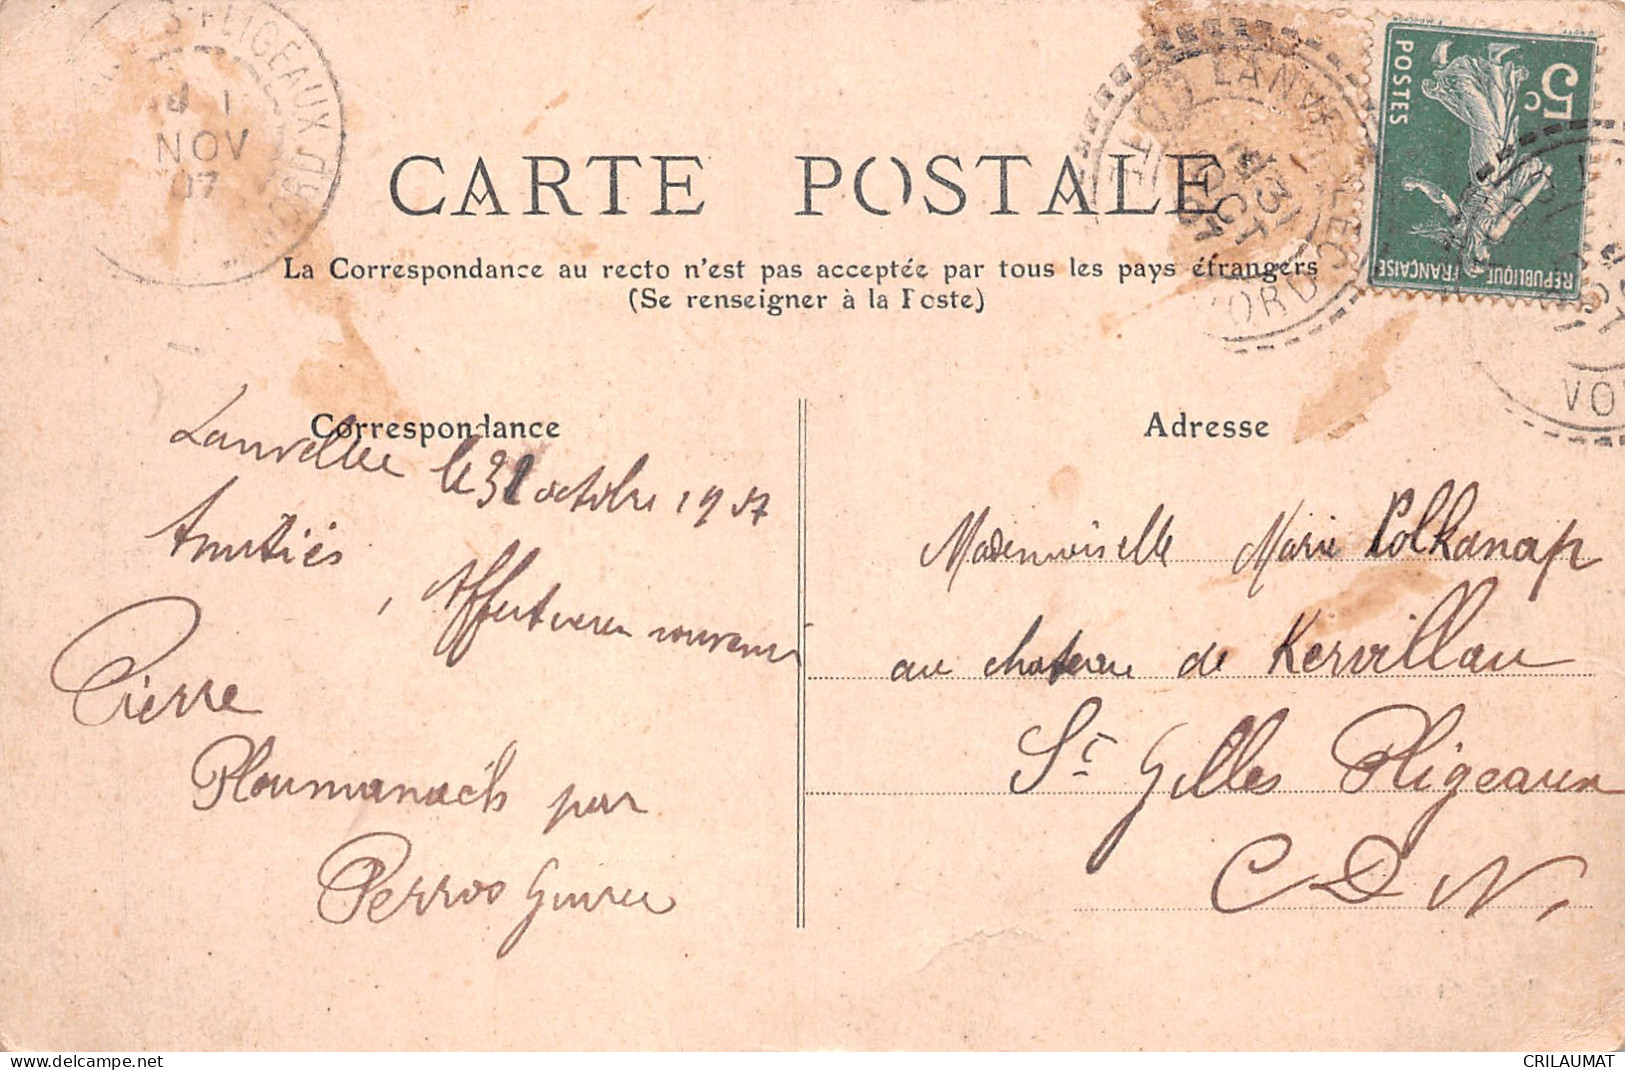 Sᵗ GILLES PLIGEAUX CÔTES DU NORD
1
NOV
07
LANVELLEC
31
OCT
07
CÔTES DU NORD
5c
POSTES
REPUBLIQUE FRANÇAISE
CARTE POSTALE
La Correspondance au recto n'est pas acceptée par tous les pays étrangers
(Se renseigner à la Poste)
Correspondance
Lanvellec le 31 octobre 1907
Amitiés,
Affectueux souvenir
Pierre
Ploumanach par
Perros Guirec
Adresse
Mademoiselle Marie Polkanap
au chateau de Kervillau
Sᵗ Gilles Pligeaux
C D N.
CRILAUMAT